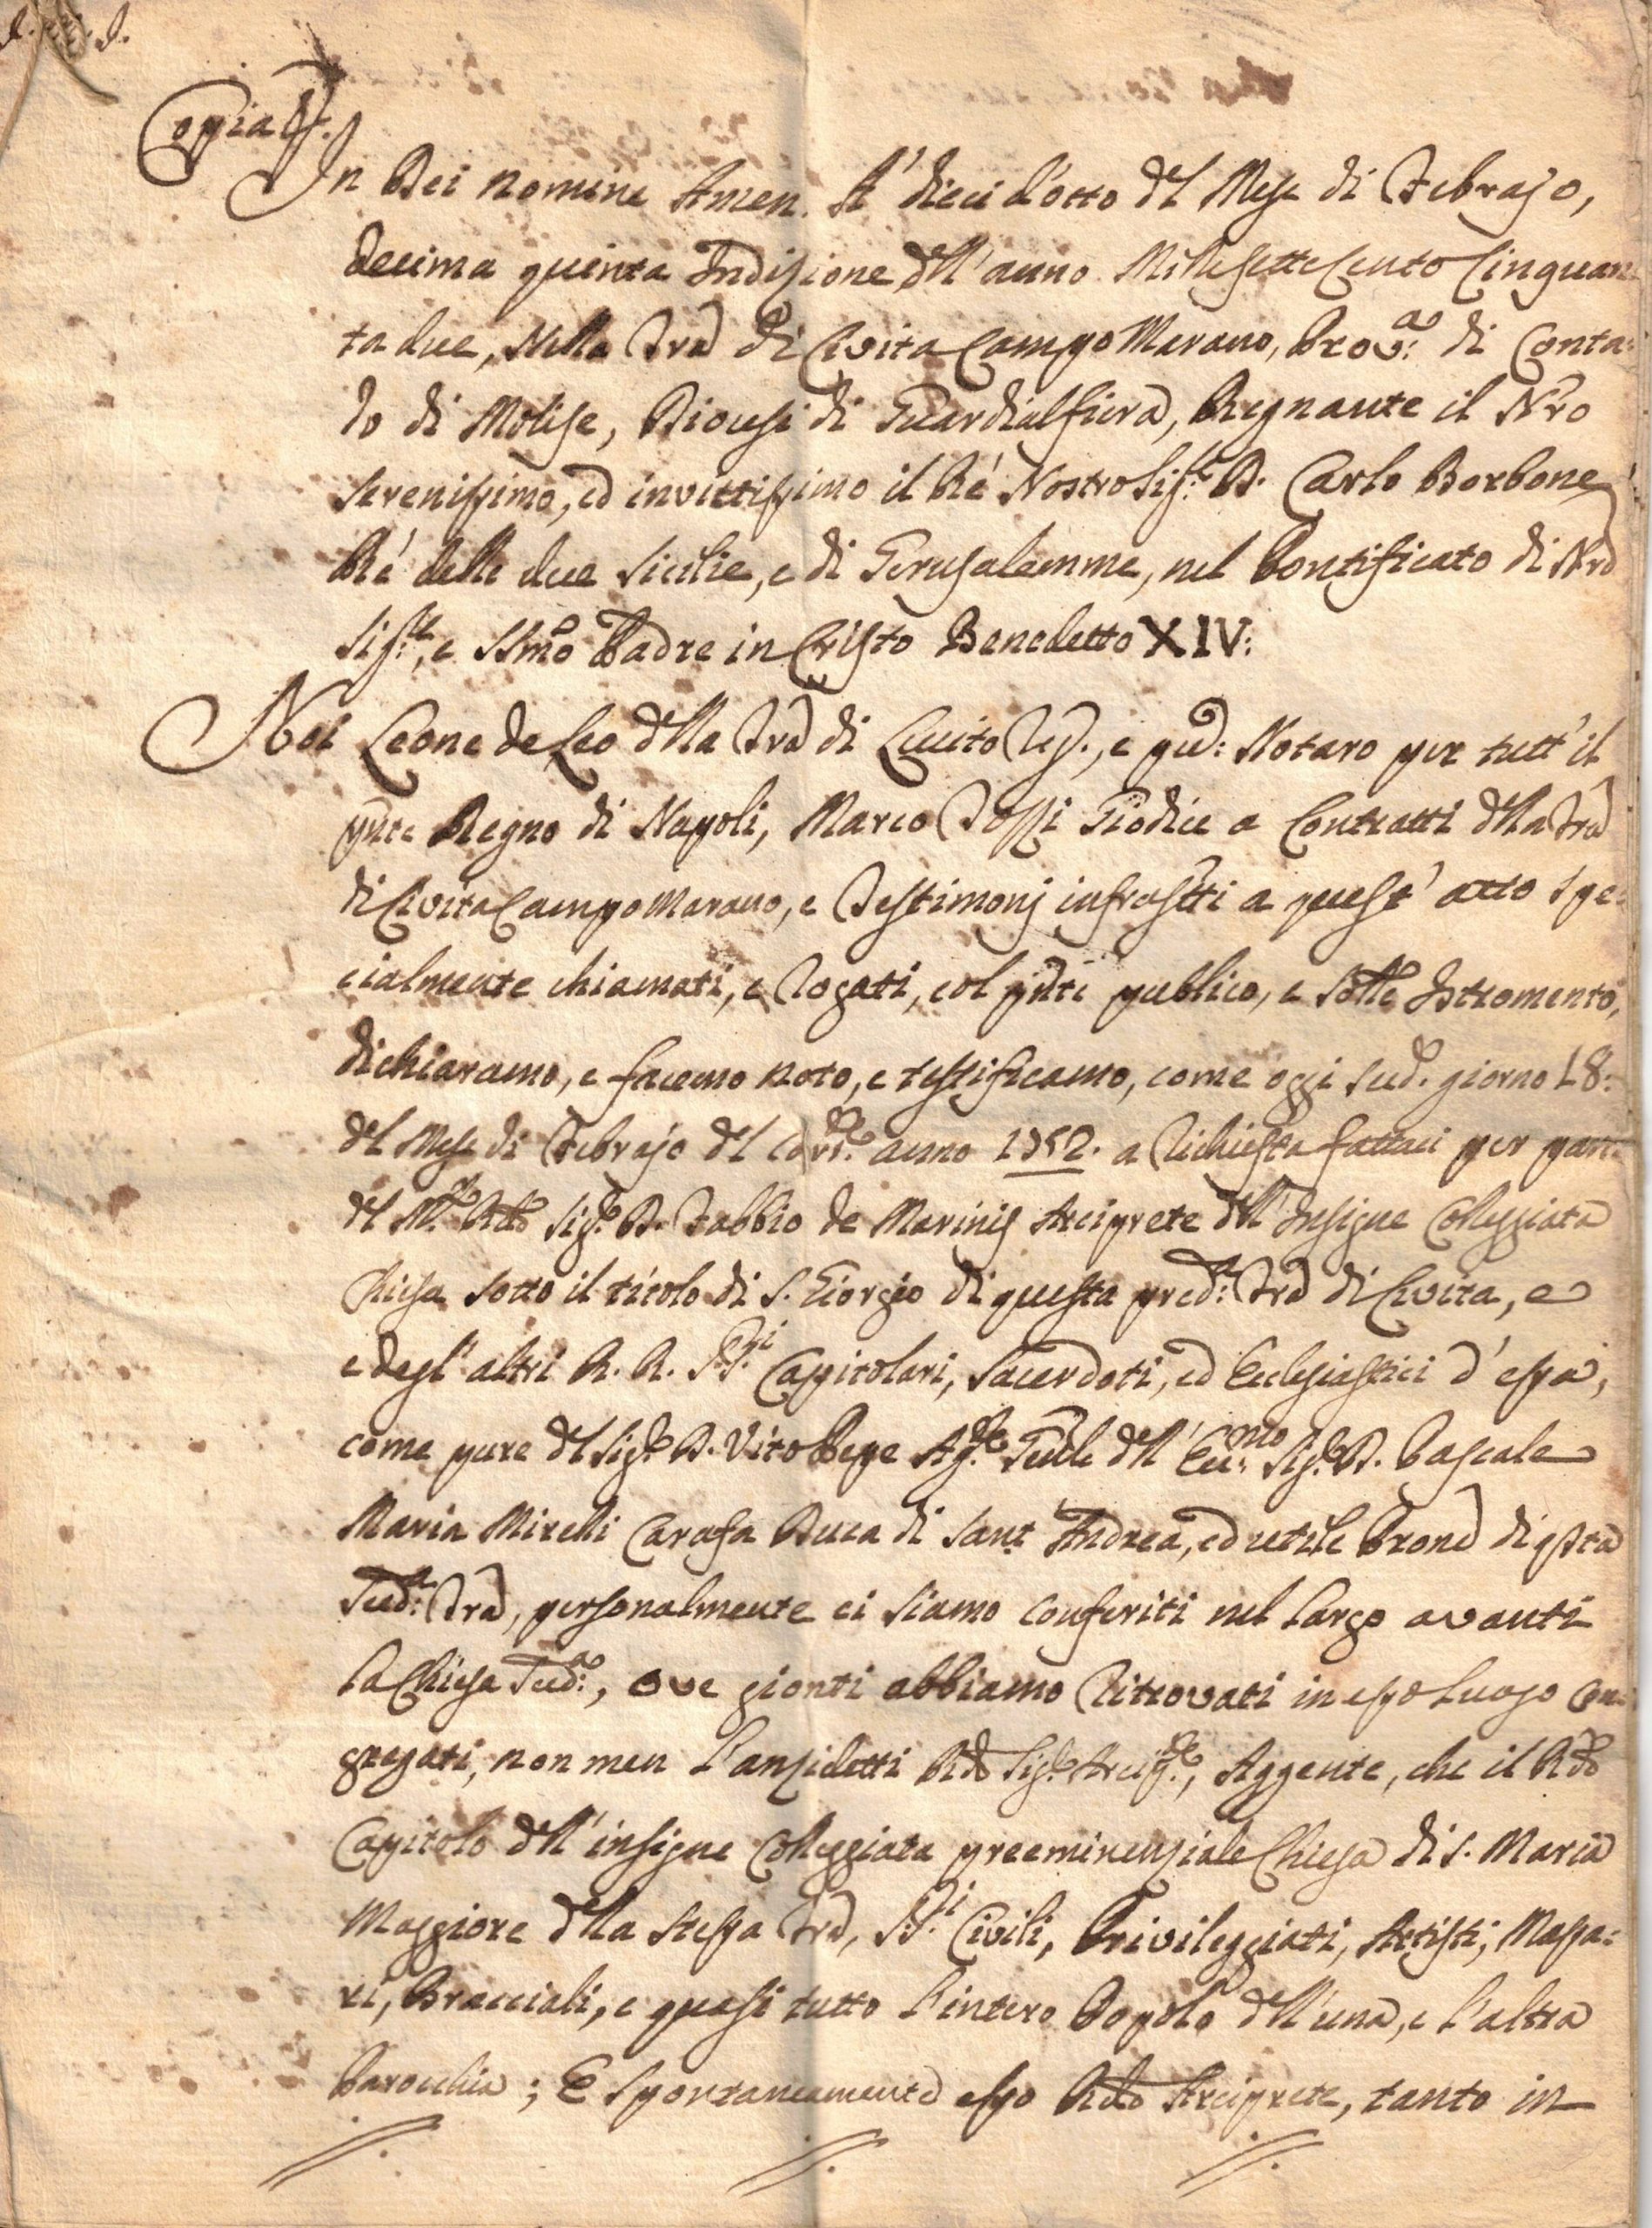 Copia &.
In Dei nomine Amen. A' dieci d'otto dell Mese di Febrajo,
decima quinta Indizione dell'anno Millesettecento Cinquan
ta due, Nella Trã di Civita Campo Marano, Prov:a di Conta:
do di Molise, Diocesi di Guardialfiera, Regnante il Nrõ
Serenissimo, ed invittissimo il Ré Nostro Sig:re D. Carlo Borbone
Ré delle due Sicilie, e di Gerusalemme, nel Pontificato di Nrõ
Sig:re, e SSmo Padre in Cristo Benedetto XIV:
Noi Leone de Leo della Trã di Lucito Reg., e pu: Notaro per tutt'il
pñte Regno di Napoli, Marco Rossi Giodice a Contratti della Trã
di Civita Campo Marano, e Testimonj infrascti a quest' atto spe:
cialmente chiamati, e Rogati, col pñte publico, e Solle Istromento,
dichiaramo, e facemo noto, e testificamo, come oggi sud.o giorno 18:
del Mese di Febrajo del Corr.te anno 1752. a Richiesta fattaci per parte
del M.to Rdo Sig.re D. Fabbio de Marinis Arciprete dell' Insigne Colleggiata
Chiesa sotto il titolo di S. Giorgio di questa pred:a Trã di Civita, e
e degl' altri R. R. SS.ri Capitolari, Sacerdoti, ed Ecclesiastici d' essa,
come pure del Sig.re D. Vito Pepe Ag.te Gñle dell' Ecc:mo Sig.re D. Pascale
Maria Mirelli Carafa Duca di Sant' Andrea, ed utile Prone di qsta
Sud:a Trã, personalmente ci siamo conferiti nel largo avanti
la Chiesa Sud:a, ove gionti abbiamo Ritrovati in esso luogo Con:
gregati, non men l'anzidetti Rdo Sig.re Arcip.te, Aggente, che il Rdo
Capitolo dell' insigne Colleggiata preeminenziale Chiesa di S. Maria
Maggiore della stessa Trã, SS.ri Civili, Privileggiati, Artisti, Massa:
ri, Bracciali, e quasi tutto l'intero Popolo dell'una, e l'altra
Parocchia; E spontaneamente esso Rdo Arciprete, tanto in